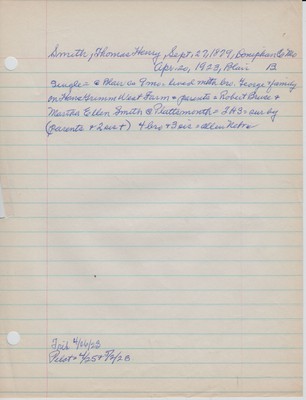 Smith, Thomas Henry, Sept. 27, 1879, Doniphan Co Ks
Apr. 20, 1923, Blair B
Single = @ Blair in 9 mo. lived with bro. George & family
on Hans Grimm West Farm = parents = Robert Bruce &
Martha Ellen Smith @ Plattsmouth = 2 H 3 = sur by
(parents & 2 sis+) 4 bro + 3 sis = all in Nebr
Trib 4/26/23
Pilot = 4/25 +